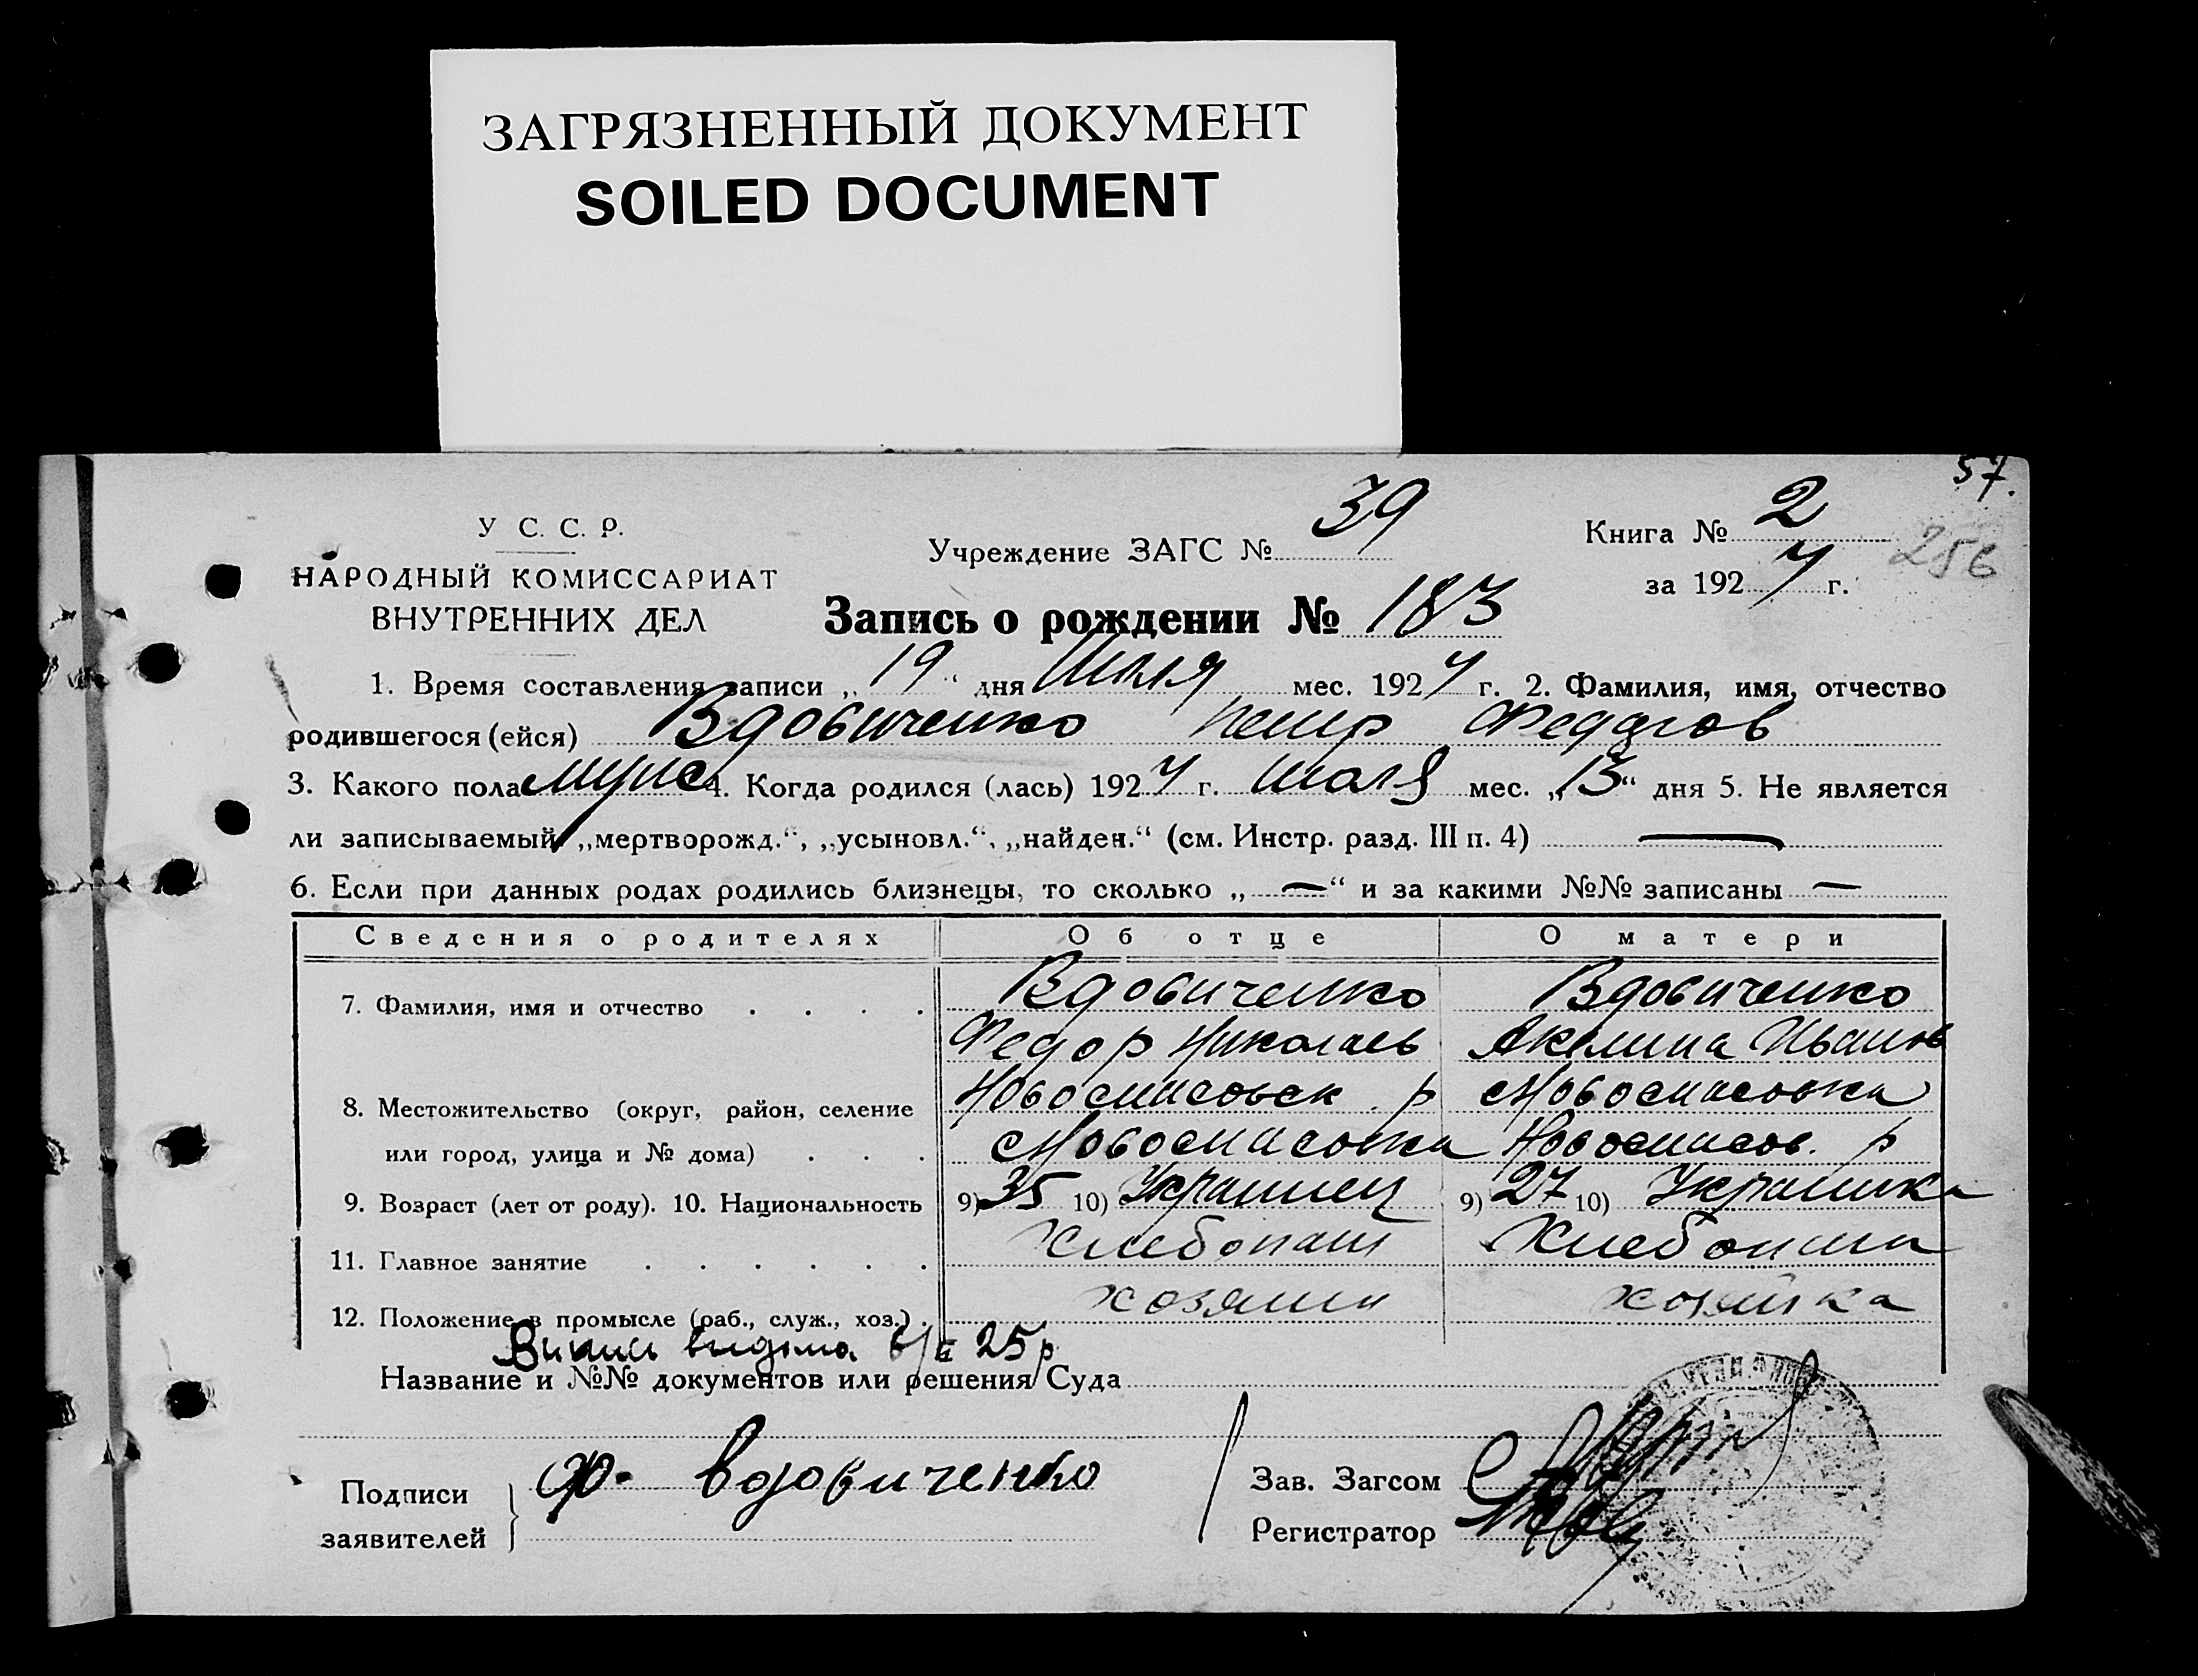 ЗАГРЯЗНЕННЫЙ ДОКУМЕНТ
SOILED DOCUMENT
57.
У С. С. Р.
НАРОДНЫЙ КОМИССАРИАТ
ВНУТРЕННИХ ДЕЛ
Учреждение ЗАГС № 39
Книга № 2
256
за 1927 г.
Запись о рождении № 183
1. Время составления записи „19“ дня Июля мес. 1927 г. 2. Фамилия, имя, отчество
родившегося (ейся) Вдовиченко Петр Федоров
3. Какого пола муж 4. Когда родился (лась) 1927 г. июля мес. „13“ дня 5. Не является
ли записываемый „мертворожд.“, „усыновл.“, „найден.“ (см. Инстр. разд. III п. 4) —
6. Если при данных родах родились близнецы, то сколько „—“ и за какими №№ записаны —
Сведения о родителях Об отце О матери
7. Фамилия, имя и отчество . . . . Вдовиченко Вдовиченко
Федор Николаев Акилина Иванов
8. Местожительство (округ, район, селение Новоспасовск р Новоспасовка
или город, улица и № дома) . . . Новоспасовка Новоспасов. р
9. Возраст (лет от роду). 10. Национальность 9) 35 10) Украинец 9) 27 10) Украинка
11. Главное занятие . . . . . . Хлебопаш Хлебопаш
12. Положение в промысле (раб., служ., хоз.) . хозяин хозяйка
25 р
Название и №№ документов или решения Суда
Подписи
заявителей
Ф. Вдовиченко
Зав. Загсом
Регистратор